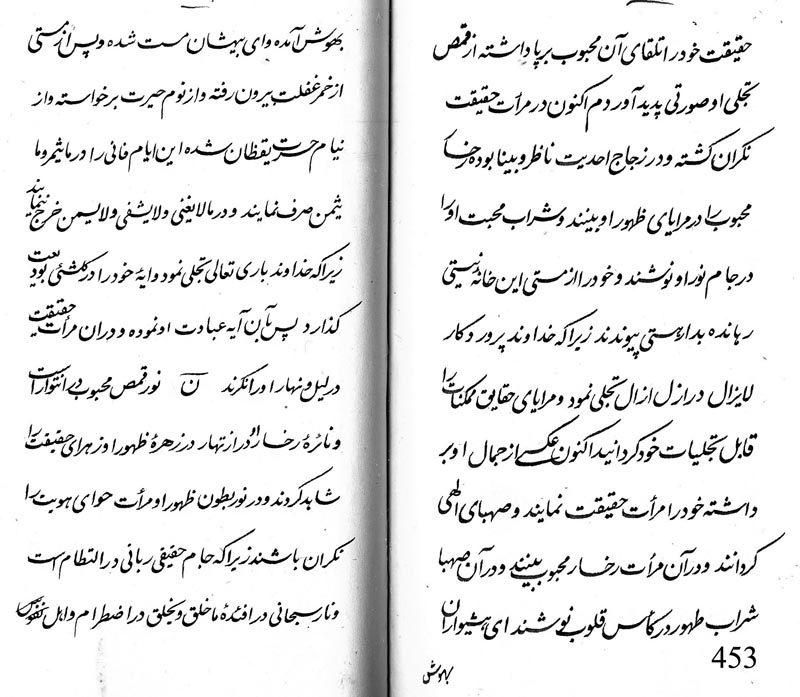 حقیقت خود را تلقای آن محبوب برپا داشته از قمص
تجلی او صورتی پدید آورد دم اکنون در مرأت حقیقت
نگران گشته و در زجاج احدیت ناظر و بینا بوده رخسا
محبوب را در مرایای ظهور او بینند و شراب محبت او را
در جام نور او نوشند و خود را از مستی این خانه نیستی
رهانده بدار هستی پیوندند زیرا که خداوند پروردکار
لایزال در ازل ازال تجلی نمود و مرایای حقایق ممکنات را
قابل تجلیات خود کردانید اکنون عکسی از جمال او بر
داشته خود را مرأت حقیقت نمایند و صهبای الهی
کردانند و در آن مرأت رخسار محبوب بینند و در آن صهبا
شراب طهور در کأس قلوب نوشند ای هشیواران
453
بهوش
بهوش آمده و ای بیهشان مست شده و پس از مستی
از خمر غفلت بیرون رفته و از نوم حیرت برخواسته و از
نیام حسرت یقظان شده این ایام فانی را در ما یثمر و ما
یثمن صرف نمایند و در ما لا یغنی و لا یشفی و لا یسمن خرج ننمایند
زیرا که خداوند باری تعالی تجلی نمود و ایهٔ خود را در کلشئی بودیعت
کذارد پس بآن آیه عبادت او نموده و در ان مرأت حقیقت
در لیل و نهار او را نکرند ن نور قمص محبوب در انتوار است
و نائرهٔ رخسار او در ازتهار در زهرهٔ ظهور او زهرای حقیقت را
شاهد کردند و در نور بطون ظهور او مرأت حوای هویت را
نکران باشند زیرا که جام حقیقی ربانی در التظام است
و نار سبحانی در افئدهٔ ما خلق و یخلق در اضطرام و اهل نفوس